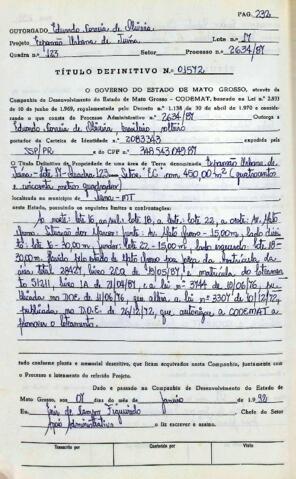 PAG. 232
OUTORGADO Eduardo Correia de Oliveira
Projeto Expansão Urbana de Juína Lote n.º 17
Quadra n.º 123 Setor Processo n.º 2634/87
TÍTULO DEFINITIVO N.º 01572
O GOVERNO DO ESTADO DE MATO GROSSO, através
da Companhia de Desenvolvimento do Estado de Mato Grosso - CODEMAT, baseado na Lei n.º 2.933
de 10 de junho de 1.969, regulamentada pelo Decreto n.º 1.138 de 30 de abril de 1.970 e considerando
o que consta do Processo Administrativo n.º 2634/87 Outorga a
Eduardo Correia de Oliveira brasileiro, solteiro
portador da Carteira de Identidade n.º 2083343 expedida pela
SSP/PR e do CPF n.º 348.543.049.87
O Título Definitivo de Propriedade de uma área de Terra denominada Expansão Urbana de
Juína - Lote 17 - Quadra 123 - Setor com 450,00 m² (quatrocentos
e cinquenta metros quadrados)
localizada no município de Juína - MT
neste Estado, possuindo os seguintes limites e confrontações:
Ao norte: lote 16, ao sul: lote 18, a lote 22, a oeste: Av. Mato
Grosso. frente: Av. Mato Grosso - 15,00m, lado direi
to: lote 16 - 30,00m, fundos: lote 22 - 15,00m, lado esquerdo: lote 18 -
30,00m, Mato Grosso da matrícula da
total 28429, livro 2 19/05/87 e matrícula do loteamento
51211, livro 21/04/87 e a lei nº 3744 de 10/06/76, pu-
blicada no DOE de 11/06/76, que altera a lei nº 3307 de 10/12/72,
publicada no D.O.E de 26/12/72, que autoriza a CODEMAT a
promover o loteamento.
tudo conforme planta e memorial descritivo, que ficam arquivados nesta Companhia, juntamente com
o Processo e loteamento do referido Projeto.
Dado e passado na Companhia de Desenvolvimento do Estado de
Mato Grosso, aos 08 dias do mês de janeiro do 1.992
Eu, de Campos Figueiredo Chefe do Setor
Apoio Administrativo o fiz escrever e assino.
Transcrito por Conferido por Visto